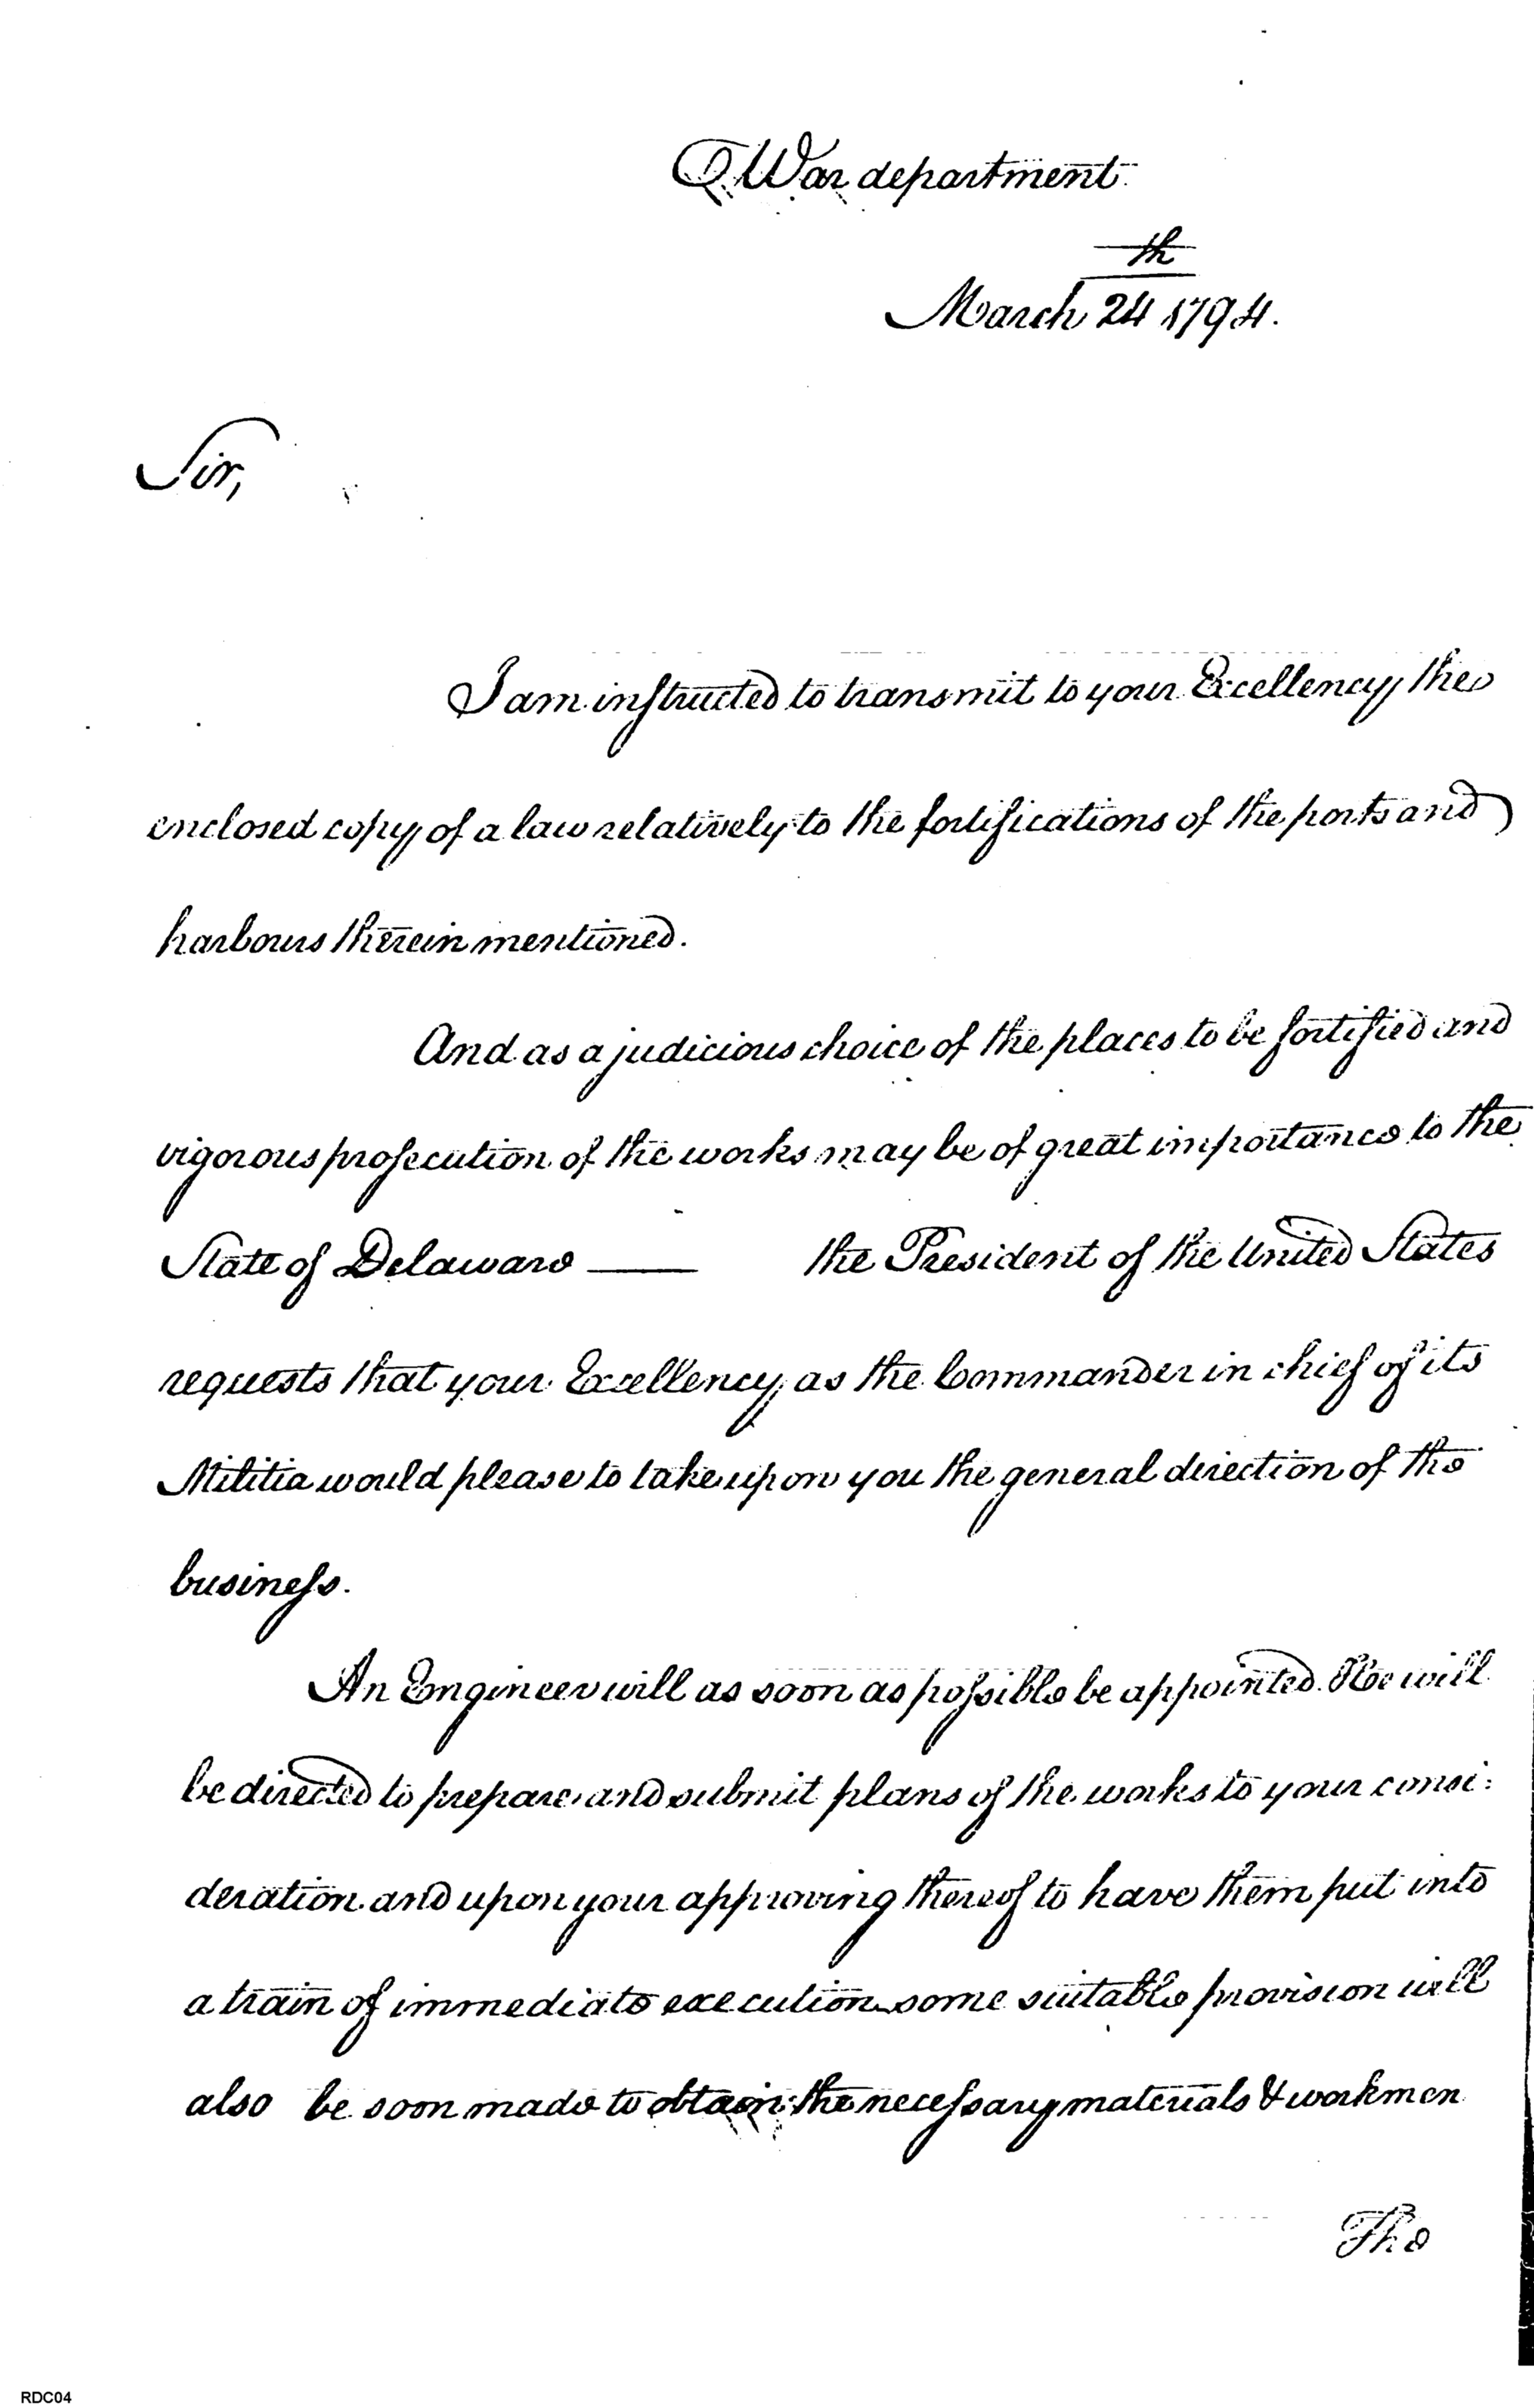 War department
th
March 24 1794.
Sir,
I am instructed to transmit to your Excellency, the
enclosed copy of a law relatively to the fortifications of the ports and
harbours therein mentioned.
And as a judicious choice of the places to be fortified and
vigorous prosecution of the works may be of great importance to the
State of Delaware —— the President of the United States
requests that your Excellency, as the Commander in chief of its
Militia would please to take upon you the general direction of the
business.
An Engineer will as soon as possible be appointed. He will
be directed to prepare and submit plans of the works to your consi:
deration and upon your approving thereof to have them put into
a train of immediate execution some suitable provision will
also be soon made to obtain the necessary materials & workmen
The
RDC04